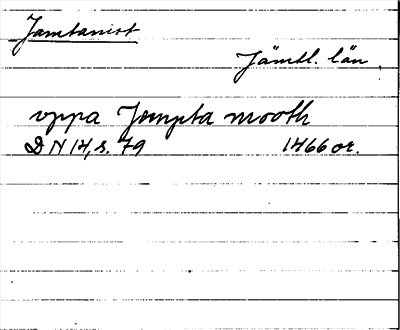 Jamtamot
Jämtl. län.
uppa Jempta mooth
DN 14, s. 79 1466 or.